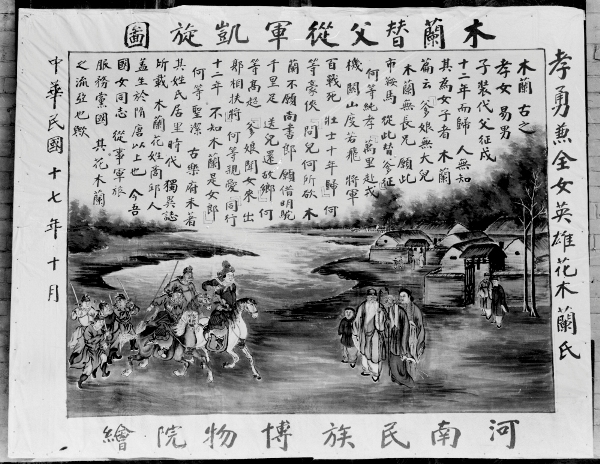 木蘭替父從軍凱旋圖
孝勇兼全女英雄花木蘭氏
木蘭 古之
孝女 易男
子裝代父征戍
十二年而歸 人無知
其為女子者 木蘭
篇云「爹娘無大兒
木蘭無長兄 願此
市鞍馬 從此替爹征」
何等純孝「萬里赴戎
機 關山度若飛 將軍
百戰死 壯士十年歸」何
等豪俠「問兒何所欲 木
蘭不願尚書郎 願借明駝
千里足 送兒還故鄉」何
等高超「爹娘聞女來 出
郭相扶將」何等親愛「同行
十二年 不知木蘭是女郎」
何等聖潔 古樂府未著
其姓氏居里時代 獨異誌
所載 木蘭花姓商邱人
蓋生於隋唐以上也 今吾
國女同志 從事軍旅
服務黨國 其花木蘭
之流亞也歟
中華民國十七年十月
河南民族博物院繪